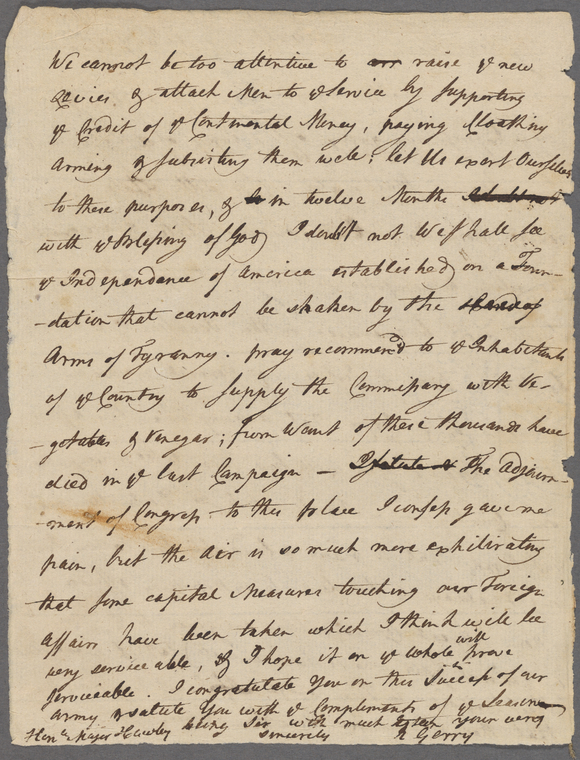 We cannot be too attentive to raise ye new
Levies & attach Men to ye Service by supporting
ye Credit of ye Continental Money, paying Cloathing
Arming & subsisting them well; let Us exert Ourselves
to these purposes, & in twelve Months
with ye Blessing of God I doubt not We shall see
ye Independence of America established on a Foun-
-dation that cannot be shaken by the
Arms of Tyranny. pray recommend to ye Inhabitants
of ye Country to supply the Commissary with Ve-
-getables & Vinegar; from Want of these thousands have
died in ye last Campaign — The Adjourn-
-ment of Congress to this place I confess gave me
pain, but the Air is so much more exhilirating
that some capital Measures touching our Foreign
Affairs have been taken which I think will be
very serviceable, & I hope it on ye whole will prove
serviceable. I congratulate You on this Success of our
Army & salute You with ye Compliments of ye Season
being Sir with much Esteem your very
Honble Major Hawley sincerely E Gerry